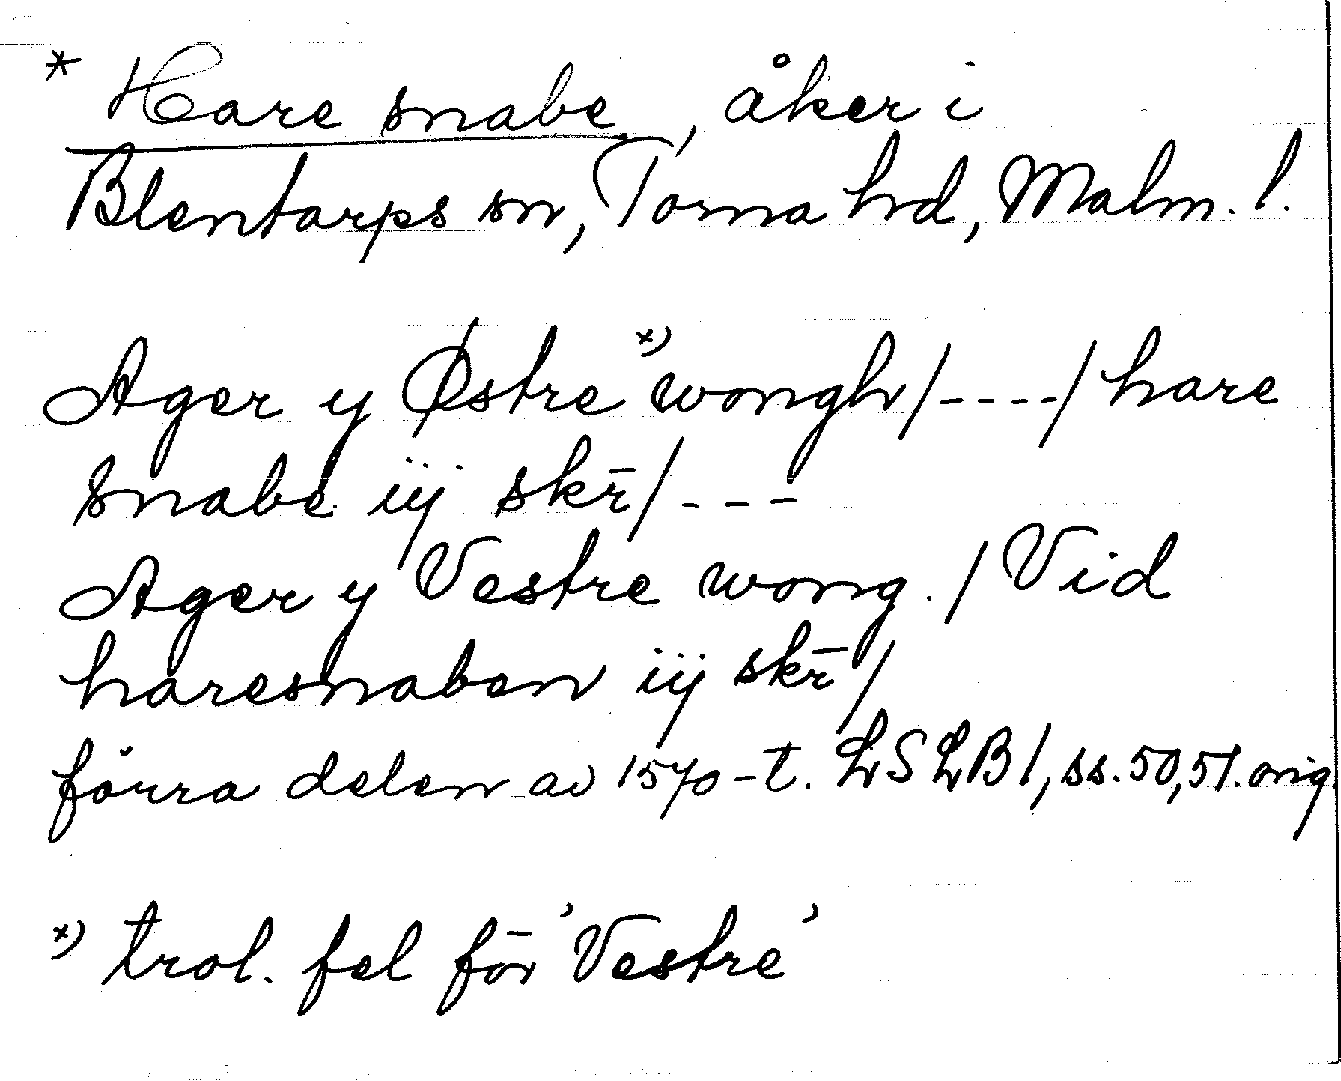 * Hare snabe, åker i
Blentarps sn, Torna hd, Malm. l.
Ager y Østre *) wongh/----/hare
snabe iij skr̄/---
Ager y Vestre wong./Vid
haresnaben iij skr̄/
förra delen av 1570-t. LSLB 1, ss. 50, 51. orig.
*) trol. fel för 'Vestre'